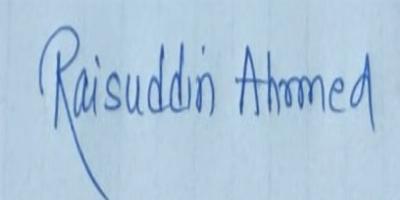 Raisuddin Ahmed